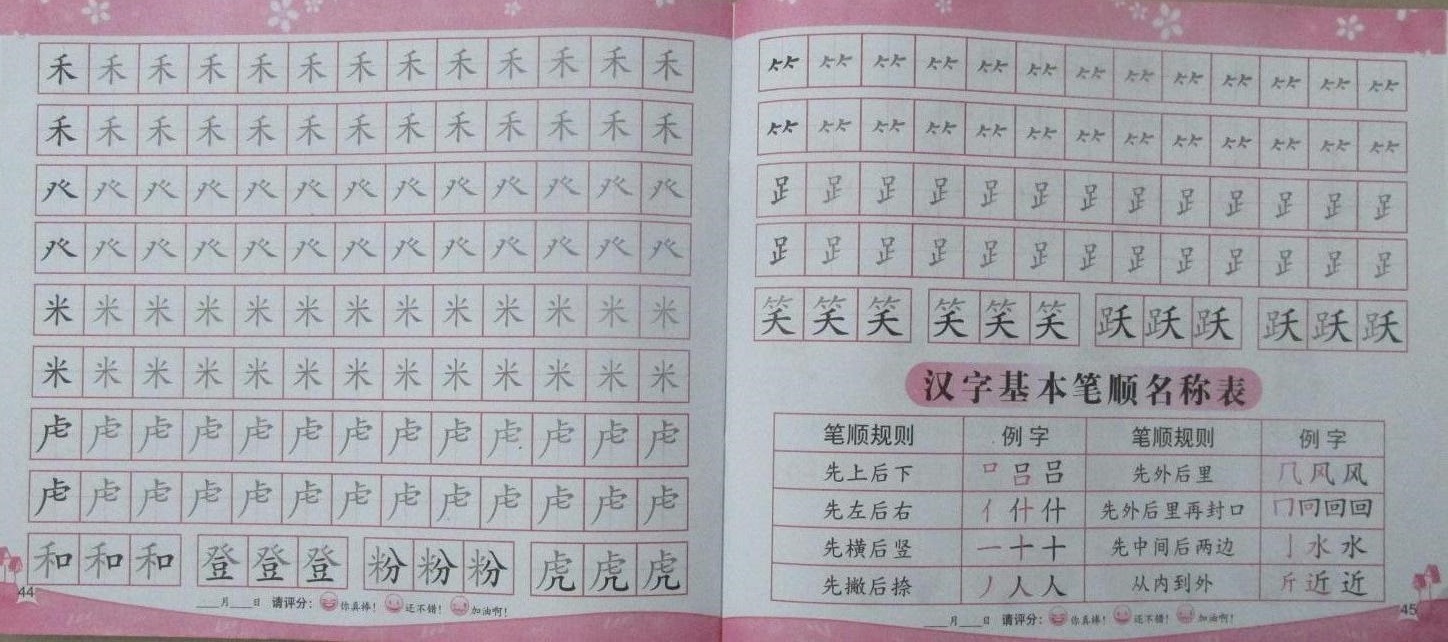 禾禾禾禾禾禾禾禾禾禾禾禾禾
禾禾禾禾禾禾禾禾禾禾禾禾禾
癶癶癶癶癶癶癶癶癶癶癶癶癶
癶癶癶癶癶癶癶癶癶癶癶癶癶
米米米米米米米米米米米米米
米米米米米米米米米米米米米
虍虍虍虍虍虍虍虍虍虍虍虍虍
虍虍虍虍虍虍虍虍虍虍虍虍虍
和和和 登登登 粉粉粉 虎虎虎
44
____月____日 请评分： 你真棒！ 还不错！ 加油啊！
⺮⺮⺮⺮⺮⺮⺮⺮⺮⺮⺮⺮⺮
⺮⺮⺮⺮⺮⺮⺮⺮⺮⺮⺮⺮⺮
⻊⻊⻊⻊⻊⻊⻊⻊⻊⻊⻊⻊⻊
⻊⻊⻊⻊⻊⻊⻊⻊⻊⻊⻊⻊⻊
笑笑笑 笑笑笑 跃跃跃 跃跃跃
汉字基本笔顺名称表
笔顺规则 例字 笔顺规则 例字
先上后下 口吕吕 先外后里 几风风
先左后右 亻什什 先外后里再封口 冂冋回回
先横后竖 一十十 先中间后两边 亅水水
先撇后捺 丿人人 从内到外 斤近近
____月____日 请评分： 你真棒！ 还不错！ 加油啊！
45